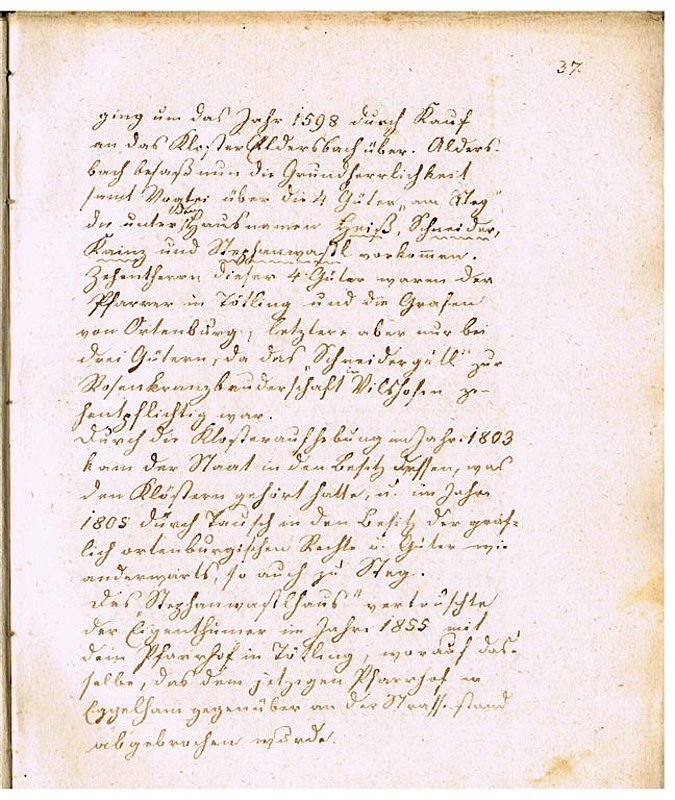 37.
ging um das Jahr 1598 durch Kauf
an das Kloster Aldersbach über. Alders-
bach besaß nun die Grundherrlichkeit
samt Vogtei über die 4 Güter „am Steg"
die unter den Hausnamen Heiß, Schneider,
Kainz und Stephanwastl vorkommen.
Zehentherrn dieser 4 Güter waren der
Pfarrer in Tötling und die Grafen
von Ortenburg, letztere aber nur bei
drei Gütern, da das „Schneidergütl" zur
Rosenkranzbruderschaft in Vilshofen ze-
hentpflichtig war.
Durch die Klosteraufhebung im Jahre 1803
kam der Staat in den Besitz dessen, was
den Klöstern gehört hatte, u. im Jahre
1805 durch Tausch in den Besitz der gräf-
lich ortenburgischen Rechte u. Güter wie
anderwärts, so auch zu Steg.
Das „Stephanwastlhaus" vertauschte
der Eigenthümer im Jahre 1855 mit
dem Pfarrhof in Tötling, worauf das-
selbe, das dem jetzigen Pfarrhof in
Eggelham gegenüber an der Strasse stand
abgebrochen wurde.